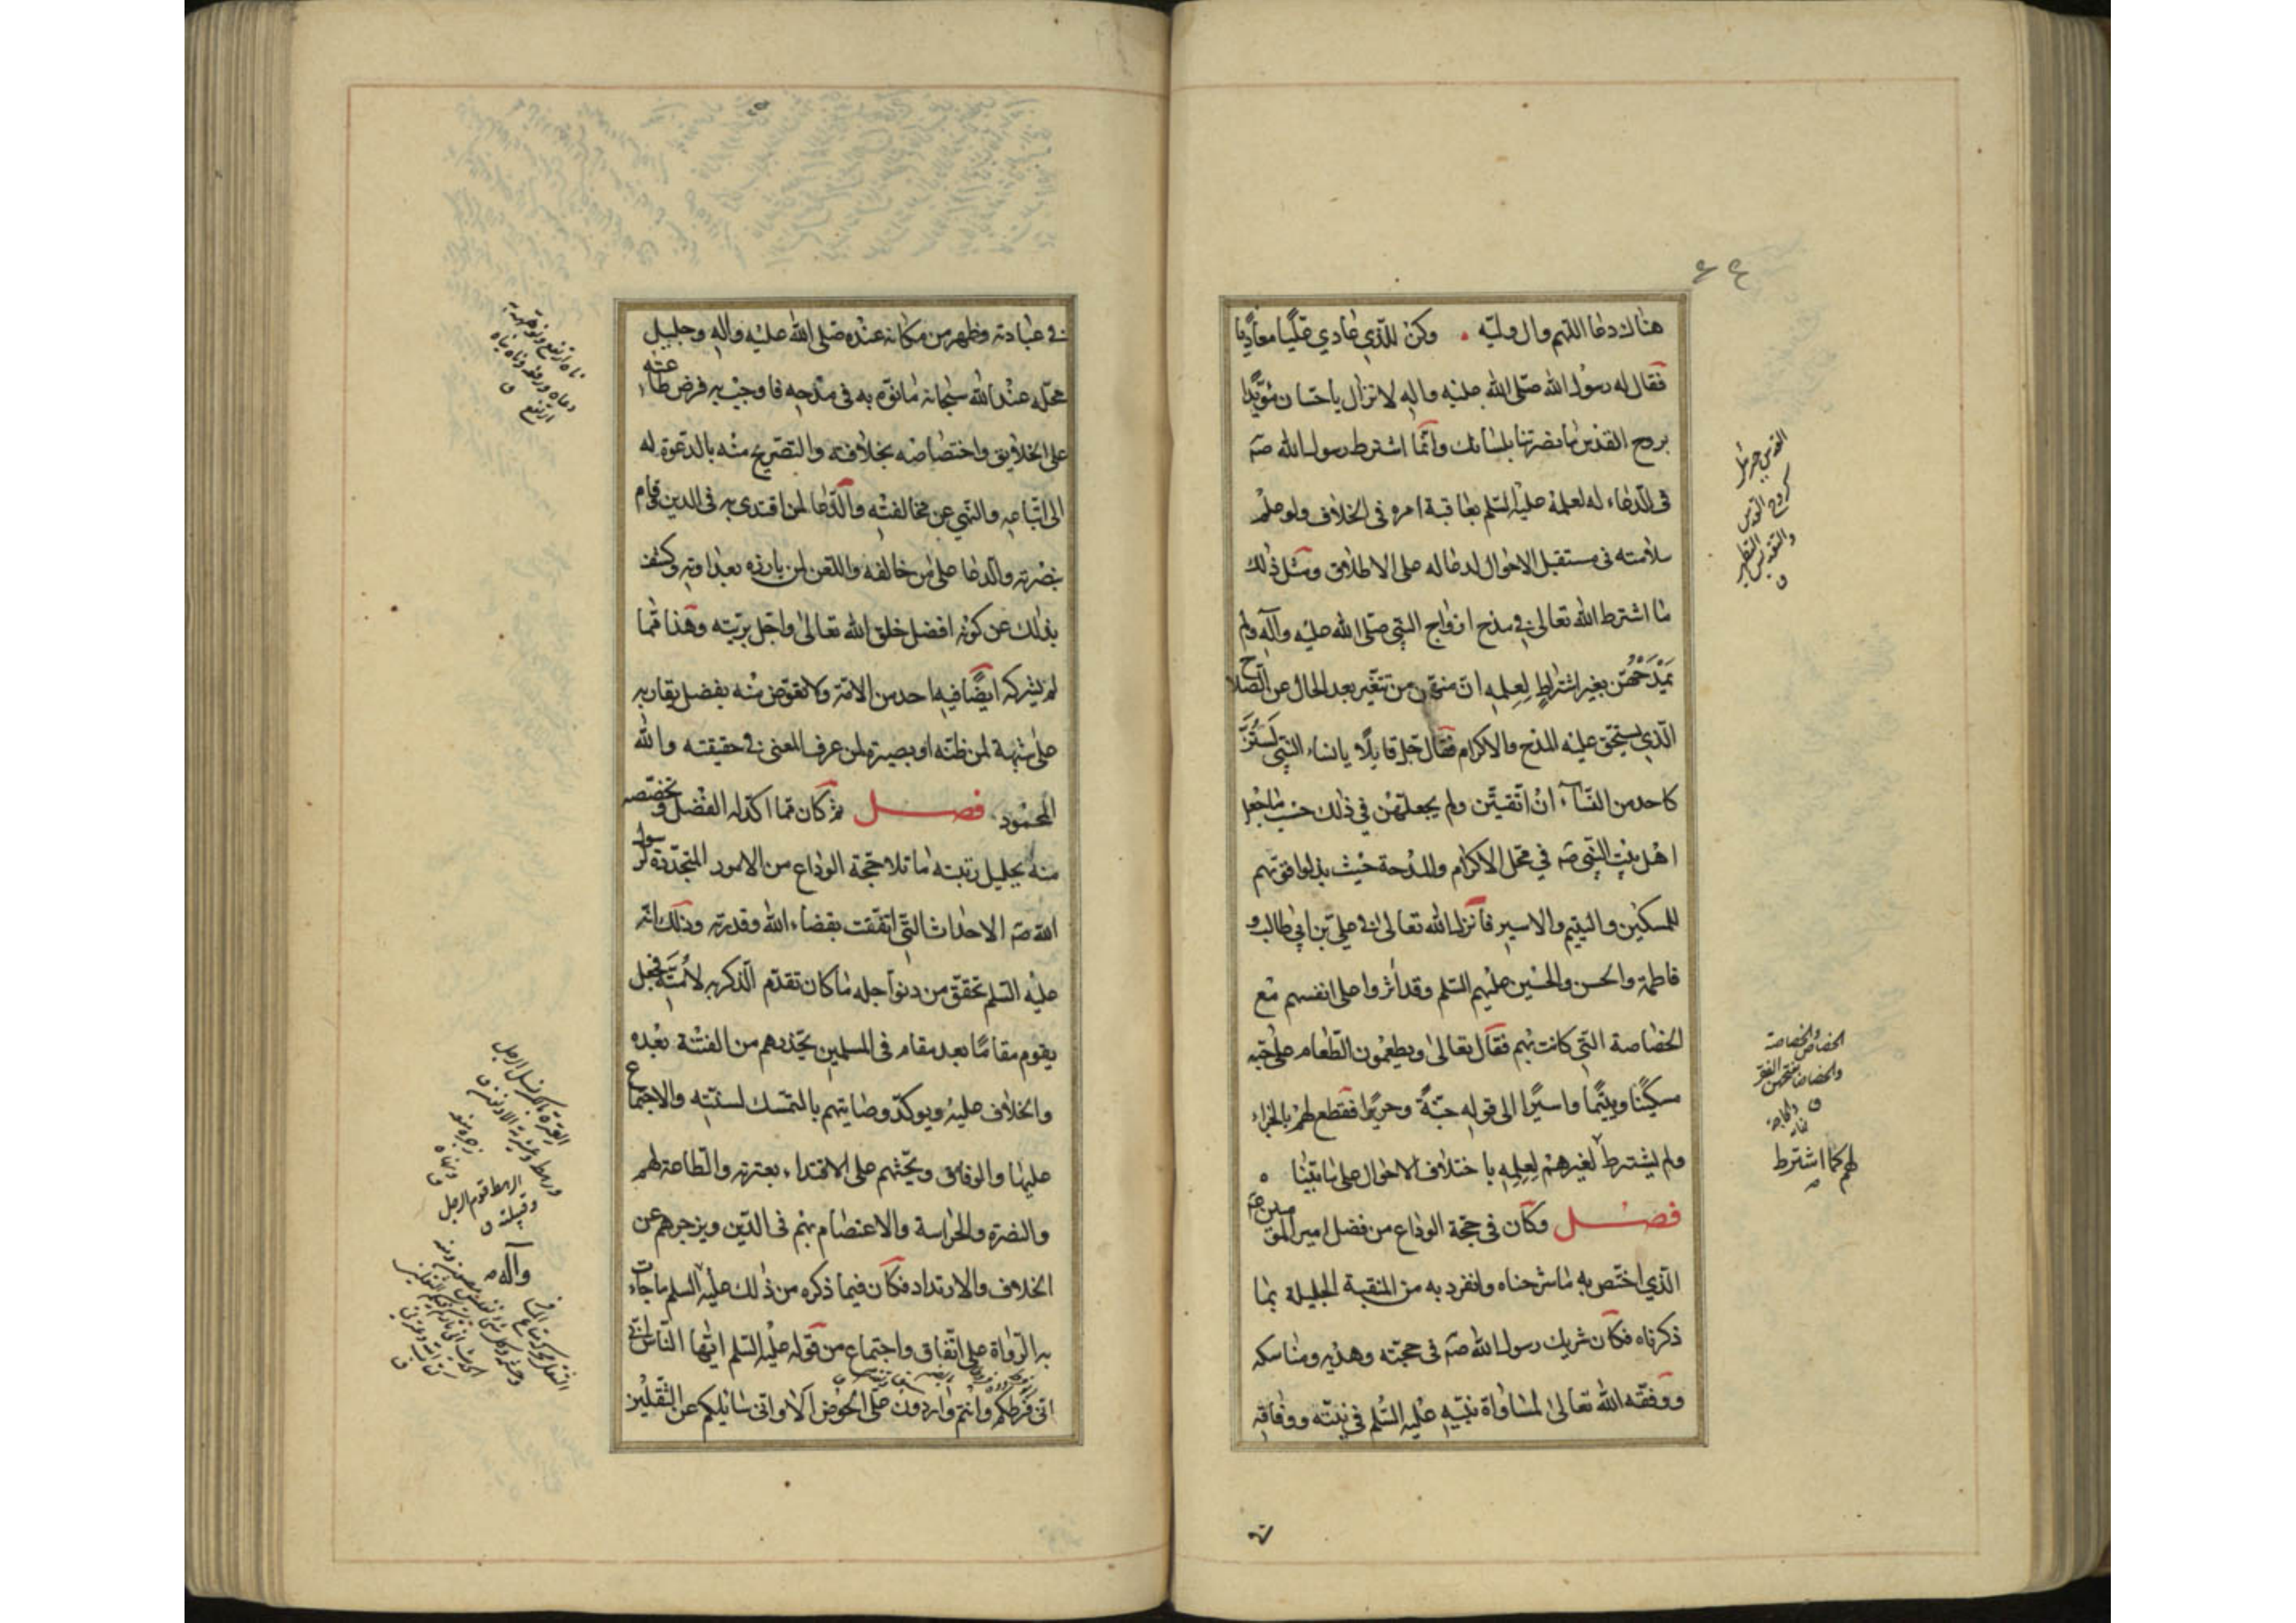 هناك دعا اللهم وال وليه وكن للذي عادي عليا معاديا
فقال له رسول الله صلى الله عليه واله لا تزال ياحسان مؤيدا
بروح القدس ما نصرتنا بلسانك وانما اشترط رسول الله صه
فى الدعاء له لعلمه عليه السلم بعاقبة امره فى الخلاف ولو علم
سلامته فى مستقبل الاحوال لدعا له على الاطلاق ومثل ذلك
ما اشترط الله تعالى فى مدح ازواج النبي صلى الله عليه وآله ولم
يمدحهن بغير اشتراط لعلمه ان منهن من تتغير بعد الحال عن الصلاح
الذي يستحق عليه المدح والاكرام فقال عز قايلا يا نساء النبي لستن
كاحد من النسآء ان اتقيتن ولم يجعلهن في ذلك حسب ما جعل
اهل بيت النبي صه في محل الاكرام والمدحة حيث بذلوا قوتهم
للمسكين واليتيم والاسير فانزل الله تعالى فى علي بن ابي طالب و
فاطمة والحسن والحسين عليهم السلم وقد أثروا على انفسهم مع
الخصاصة التي كانت بهم فقال تعالى ويطعمون الطعام على حبه
مسكينا ويتيما واسيرا الى قوله جنة وحريرا فقطع لهم بالجزاء
ولم يشترط لغيرهم لعلمه باختلاف الاحوال على ما بينا
فصل وكان فى حجة الوداع من فضل امير المؤمنين عه
الذي اختص به ما شرحناه وانفرد به من المنقبة الجليلة بما
ذكرناه فكان شريك رسول الله صه فى حجته وهديه ومناسكه
ووفقه الله تعالى لمساواة نبيه عليه السلم في نيته ووفاقه
القدس جبرئيل
كروح القدس
والتقديس التطهير
ق
الخصاص والخصاصة
والخصاصا بفتحهن الفقر
ق
لهم كما اشترط
فى عبادته وظهر من مكانه عنده صلى الله عليه واله وجليل
محله عند الله سبحانه ما نوه به فى مدحه فاوجب به فرض طاعته
على الخلايق واختصاصه بخلافته والتصريح منه بالدعوة له
الى اتباعه والنهي عن مخالفته والدعا لمن اقتدى به فى الدين وقام
بنصرته والدعا على من خالفه واللعن لمن بارزه بعداوته وكشف
بذلك عن كونه افضل خلق الله تعالى واجل بريته وهذا مما
لم يشركه ايضا فيه احد من الامة ولا تعوض منه بفضل يقاربه
على شبهة لمن ظنه او بصيرة لمن عرف المعنى فى حقيقته والله
المحمود فصل ثم كان مما اكد له الفضل وتخصصه
منه بجليل رتبته ما تلا حجة الوداع من الامور المتجددة لرسول
الله صه الاحداث التي اتفقت بقضاء الله وقدرته وذلك انه
عليه السلم تحقق من دنو اجله ما كان تقدم الذكر به لامته فجعل
يقوم مقاما بعد مقام فى المسلمين يحذرهم من الفتنة بعده
والخلاف عليه ويوكد وصايتهم بالتمسك لسنته والاجتماع
عليها والوفاق ويحثهم على الاقتداء بعترته والطاعة لهم
والنصرة والحراسة والاعتصام بهم فى الدين ويزجرهم عن
الخلاف والارتداد فكان فيما ذكره من ذلك عليه السلم ما جاءت
به الرواة على اتفاق واجتماع من قوله عليه السلم ايها الناس اني
اني فرطكم وانتم واردون على الحوض آلا واني سائلكم عن الثقلين
الرهط قوم الرجل
وقبيلته ق
وآله